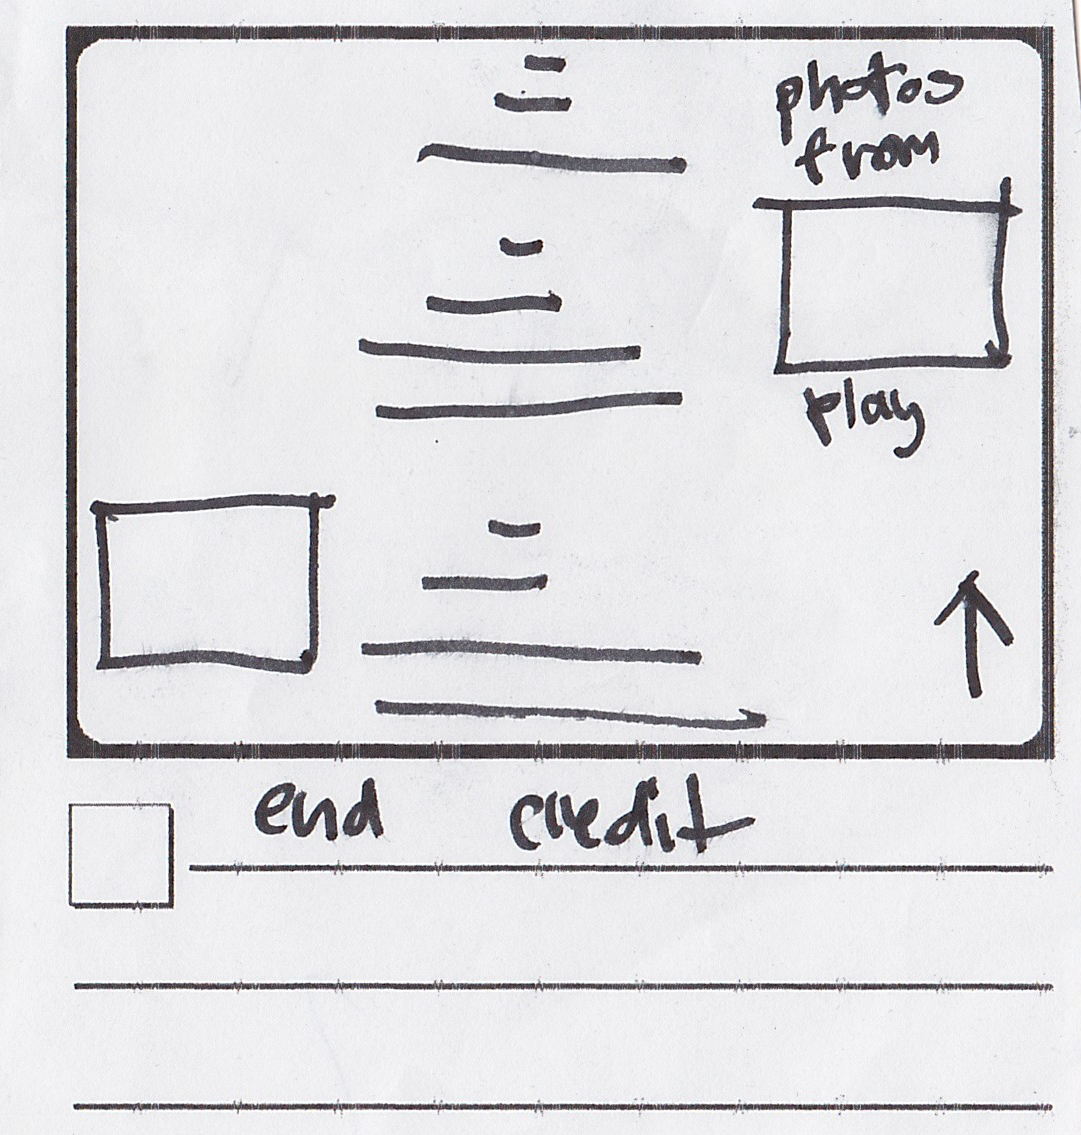 photos
from
play
end credit